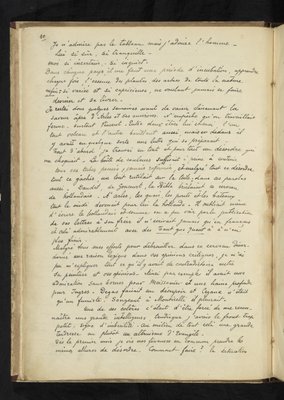 Je n'admire pas le tableau mais j'admire l'homme. —
Lui si sûr, si tranquille.
Moi si incertain, si inquiet.
Dans chaque pays il me faut une période d'incubation, apprendre
chaque fois l'essence des plantes, des arbres, de toute la nature
enfin si variée et si capricieuse, ne voulant jamais se faire
deviner et se livrer.
Je restai donc quelques semaines avant de saisir clairement la
saveur âpre d'Arles et ses environs. N'empêche qu'on travaillait
ferme, surtout Vincent. Entre deux êtres, lui et moi, l'un
tout volcan et l'autre bouillant aussi mais en dedans il
y avait en quelque sorte une lutte qui se préparait.
Tout d'abord je trouvai en tout et pour tout un désordre qui
me choquait. La boîte de couleurs suffisait à peine à contenir
tous ces tubes pressés, jamais refermés, et malgré tout ce désordre,
tout ce gâchis, un tout rutilant sur la toile; dans ses paroles
aussi. Daudet, de Goncourt, la Bible brûlaient ce cerveau
de hollandais. A Arles, les quais, les ponts et les bateaux
tout le midi devenait pour lui la hollande. Il oubliait même
d'écrire le hollandais et comme on a pu voir par la publication
de ses lettres à son frère, il n'écrivait jamais qu'en français
et cela admirablement avec des Tant que quant à à n'en
plus finir.
Malgré tous mes efforts pour débrouiller dans ce cerveau désor-
donné une raison logique dans ses opinions critiques, je n'ai
pu m'expliquer tout ce qu'il y avait de contradictoire entre
sa peinture et ses opinions. Ainsi par exemple il avait une
admiration sans bornes pour Meissonier et une haine profonde
pour Ingres. Degas faisait son désespoir et Cézanne n'était
qu'un fumiste. Songeant à Monticelli il pleurait.
Une de ses colères c'était d'être forcé de me recon-
naître une grande intelligence, tandis que j'avais le front trop
petit, signe d'imbécilité. Au milieu de tout cela une grande
tendresse ou plutôt un altruisme d'Evangile.
Dès le premier mois je vis nos finances en commun prendre les
mêmes allures de désordre. Comment faire? la situation